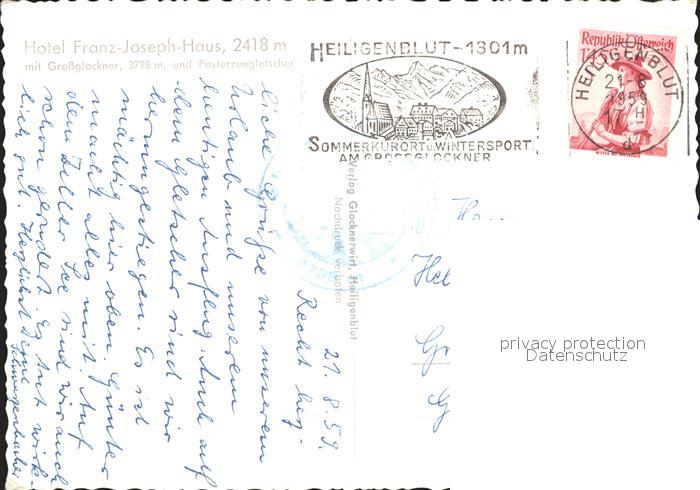 Hotel Franz-Joseph-Haus, 2418 m
mit Großglockner, 3798 m, und Pasterzengletscher
HEILIGENBLUT - 1301 m
SOMMERKURORT u. WINTERSPORT
AM GROSSGLOCKNER
Republik Österreich
HEILIGENBLUT
21.-8
1959
Verlag Glocknerwirt, Heiligenblut
Nachdruck verboten
21. 8. 59.
Recht herz-
liche Grüße von unserem
Urlaub und unserem
heutigen Ausflug. Auch auf
dem Gletscher sind wir
herumgestiegen. Es ist
mächtig hier oben. Günter
macht alles mit. Auf
dem Zeller See sind wir auch
schon gerudert. Es tut wirk-
lich gut. Herzlichst
privacy protection
Datenschutz